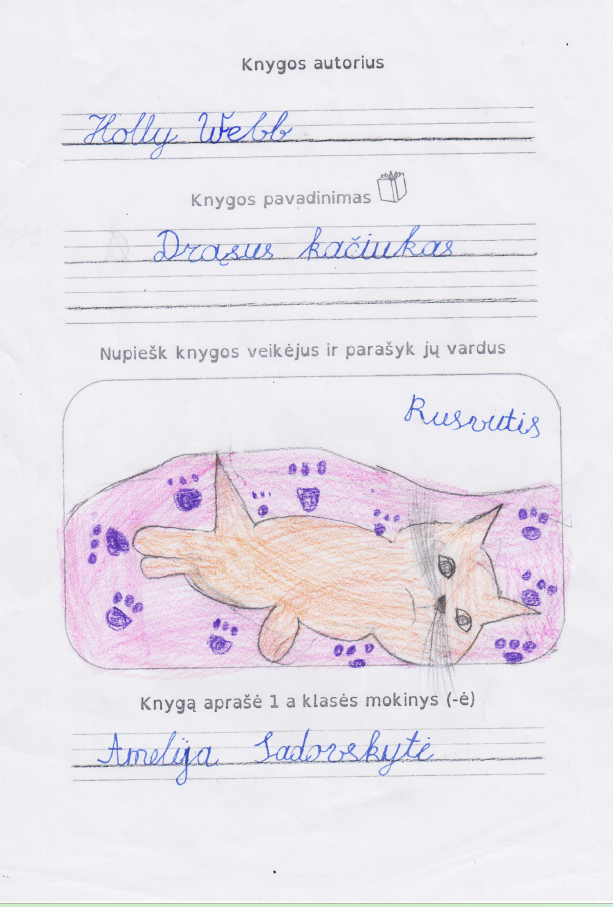 Knygos autorius
Holly Webb
Knygos pavadinimas
Drąsus kačiukas
Nupiešk knygos veikėjus ir parašyk jų vardus
Rusvutis
Knygą aprašė 1 a klasės mokinys (-ė)
Amelija Sadovskytė